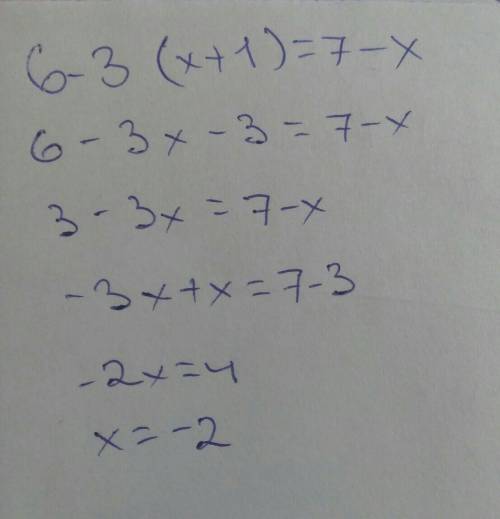 6-3 (x+1)=7-x
6-3x-3=7-x
3-3x=7-x
-3x+x=7-3
-2x=4
x=-2